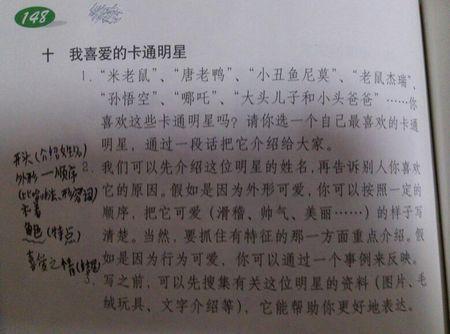 148
十 我喜爱的卡通明星
1. “米老鼠”、“唐老鸭”、“小丑鱼尼莫”、“老鼠杰瑞”、
“孙悟空”、“哪吒”、“大头儿子和小头爸爸”……你
喜欢这些卡通明星吗？请你选一个自己最喜欢的卡通
明星，通过一段话把它介绍给大家。
2. 我们可以先介绍这位明星的姓名，再告诉别人你喜欢
它的原因。假如是因为外形可爱，你可以按照一定的
顺序，把它可爱（滑稽、帅气、美丽……）的样子写
清楚。当然，要抓住有特征的那一方面重点介绍。假
如是因为行为可爱，你可以通过一个事例来反映。
写之前，可以先搜集有关这位明星的资料（图片、毛
绒玩具、文字介绍等），它能帮助你更好地表达。
开头(介绍
外形—顺序
(特点)
喜爱之情